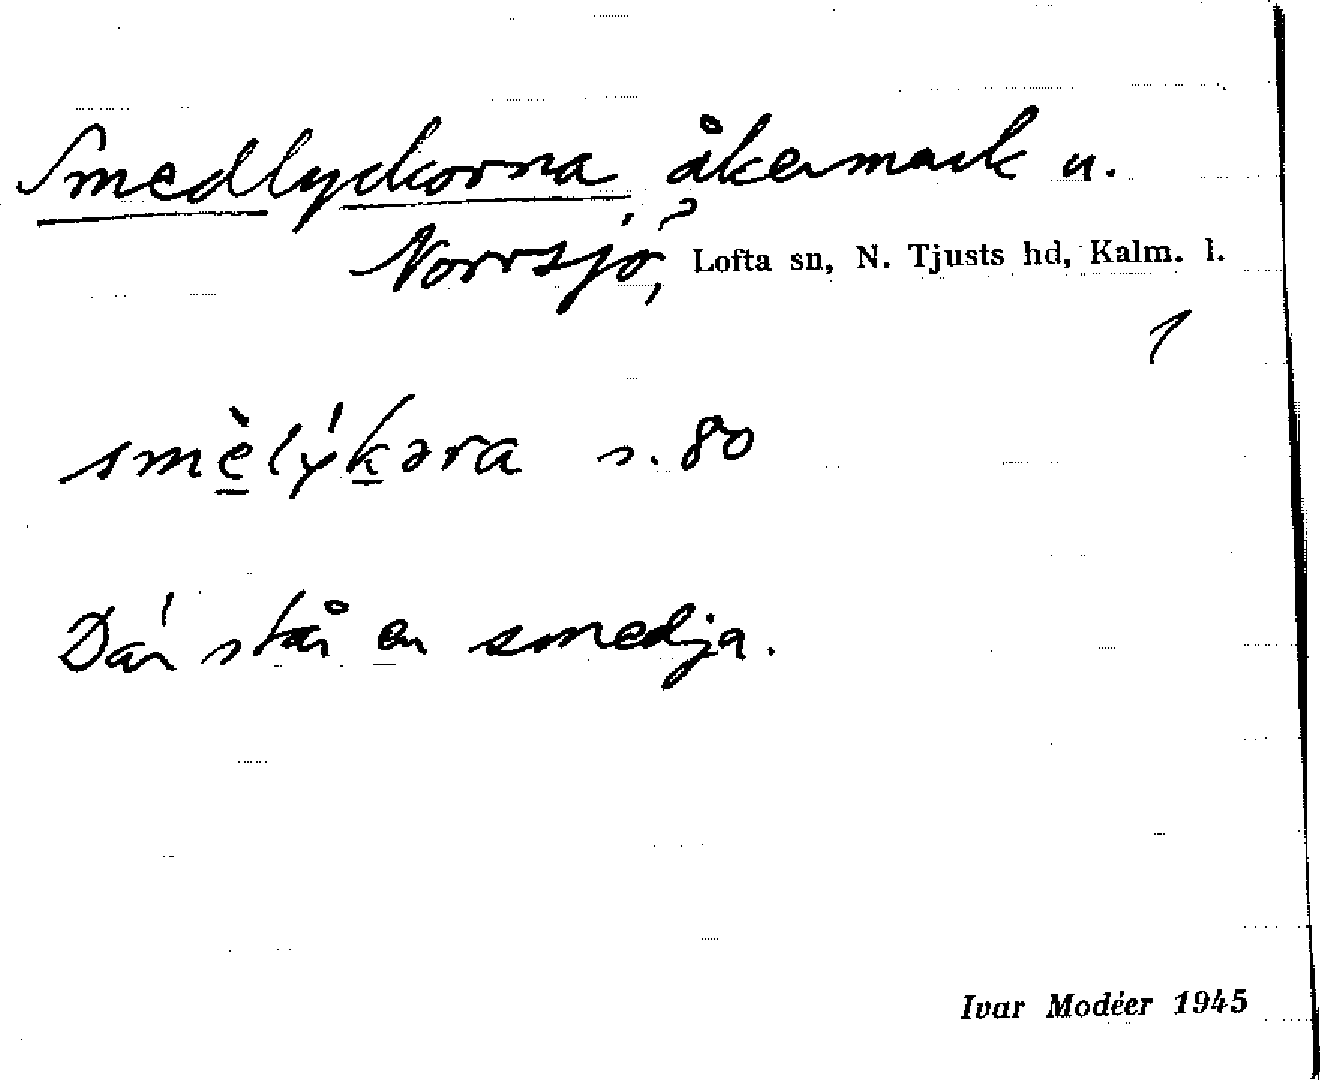 Smedlyckorna, åkermark u.
Norrsjö, Lofta sn, N. Tjusts hd, Kalm. l.
1
smèlýkəra s. 80
Där står en smedja.
Ivar Modéer 1945